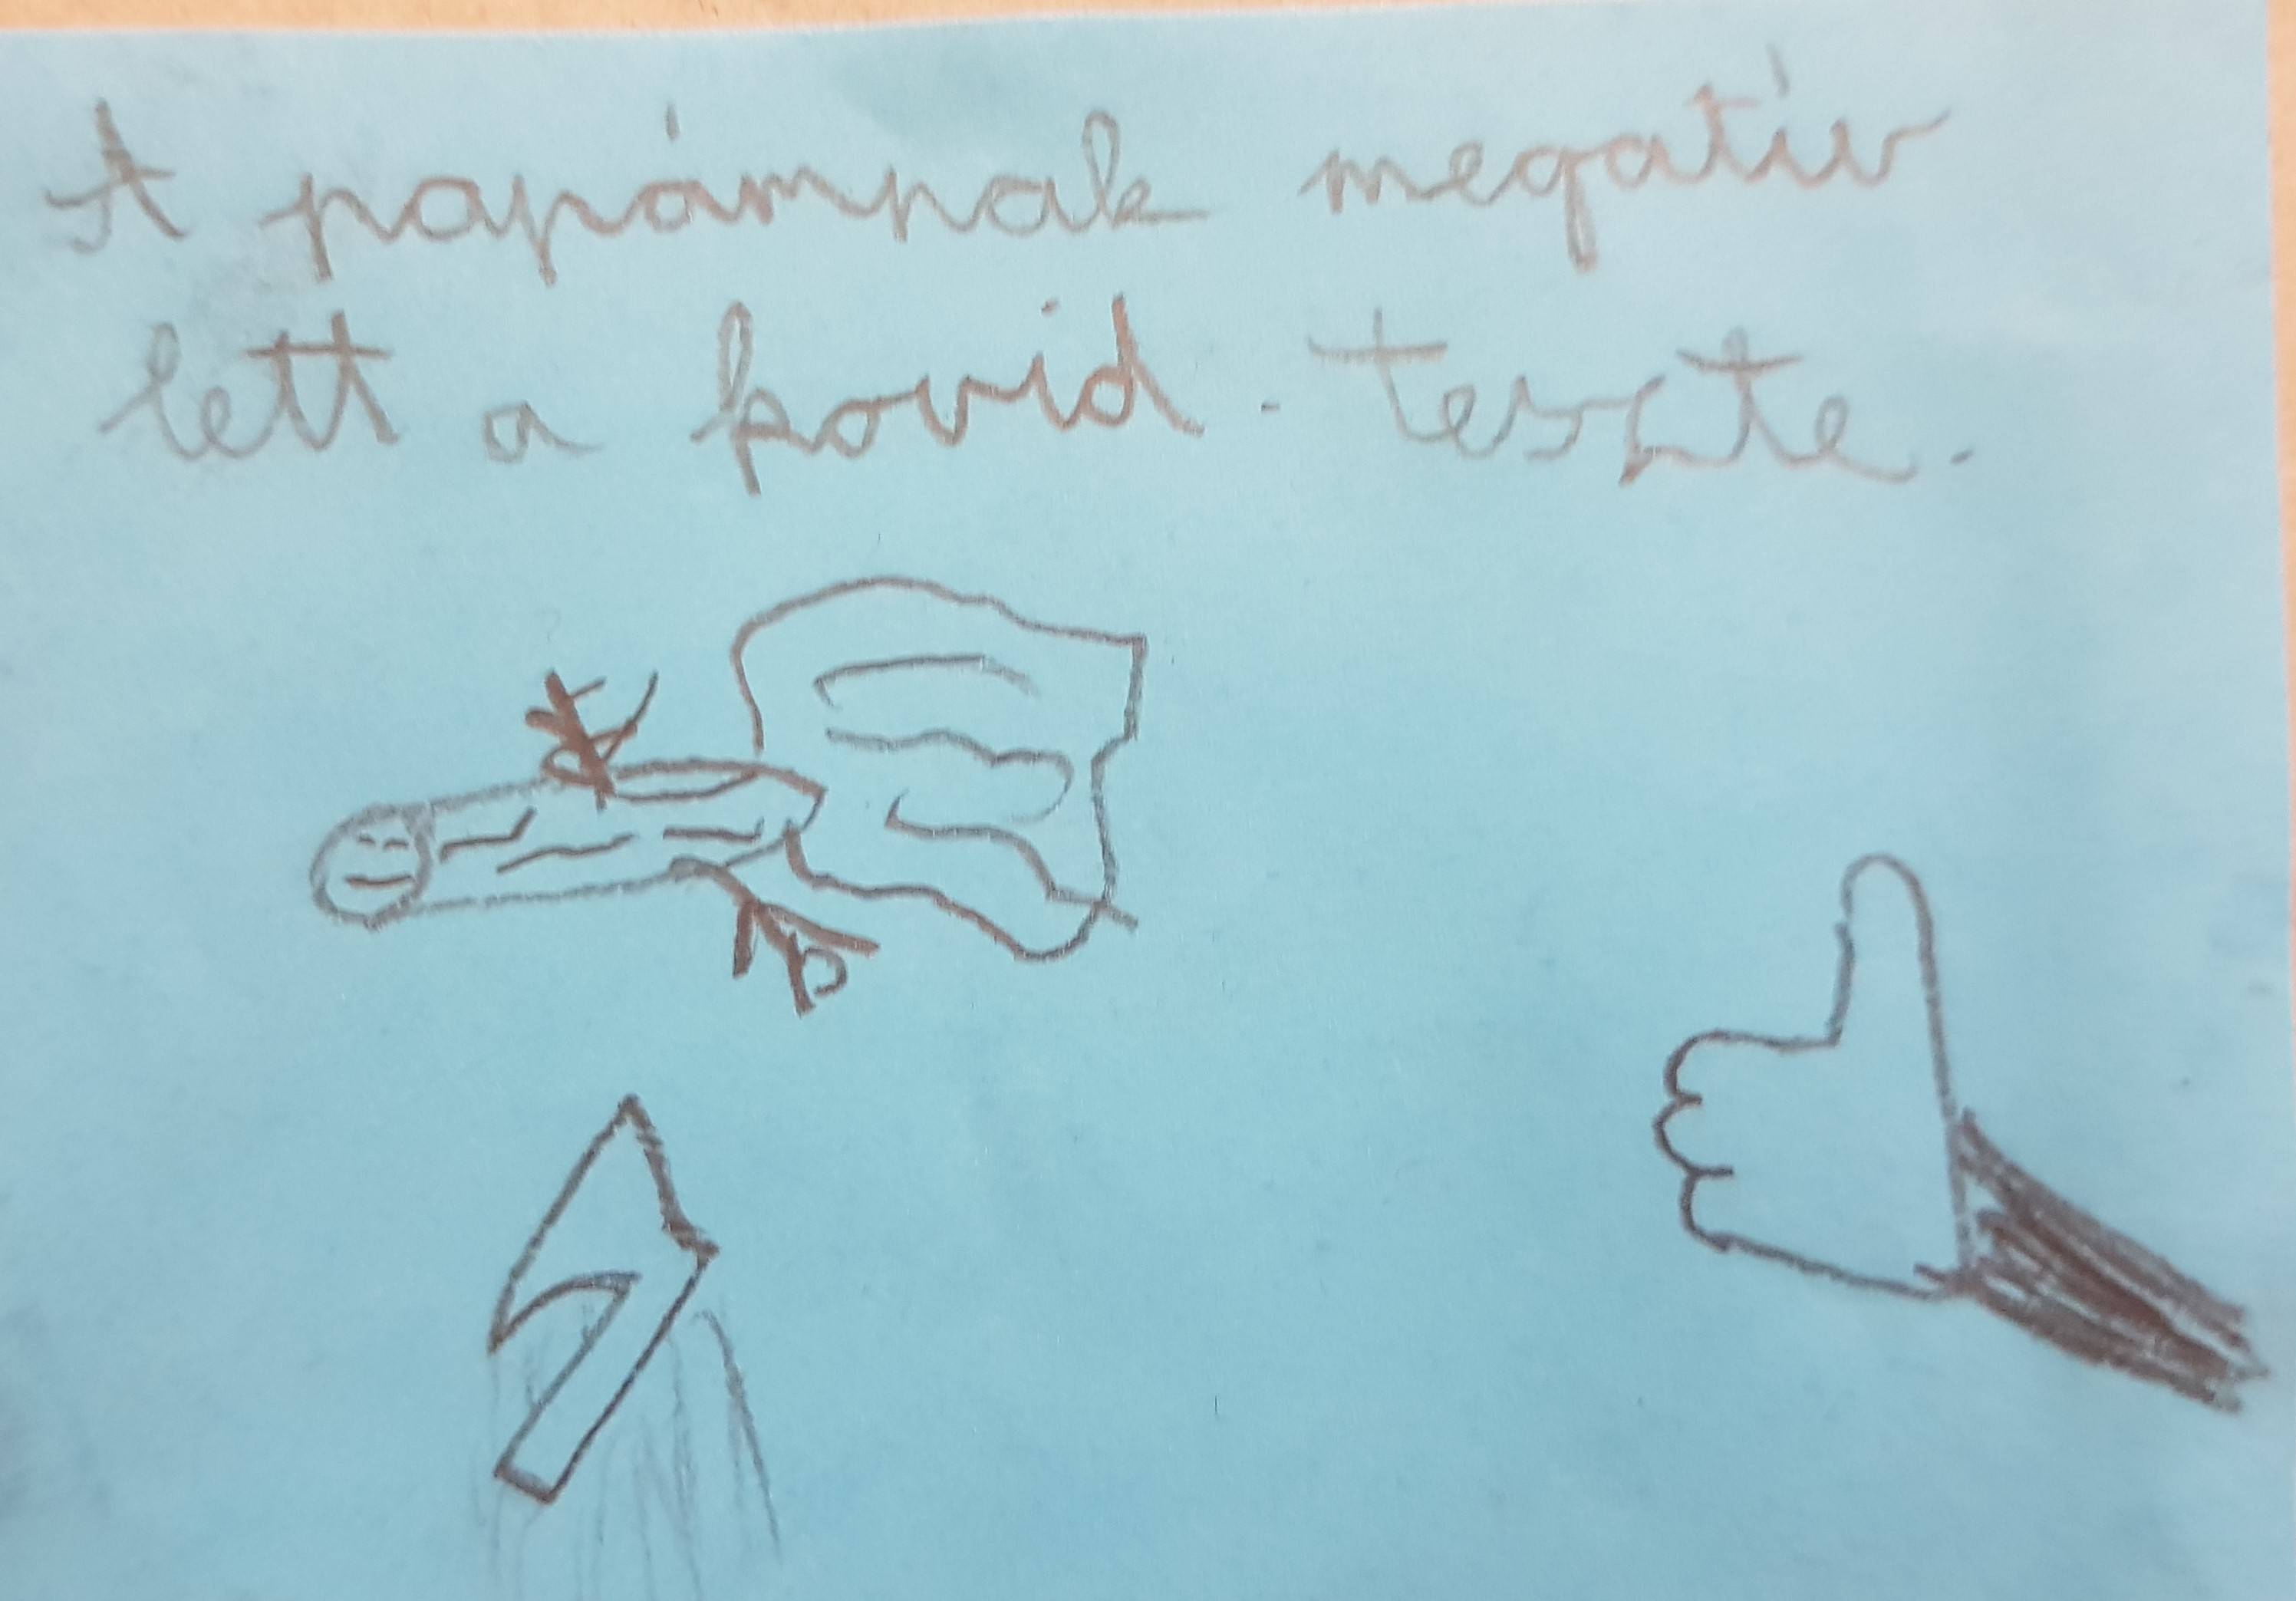 A papámnak megatív
lett a kovid-teszte.